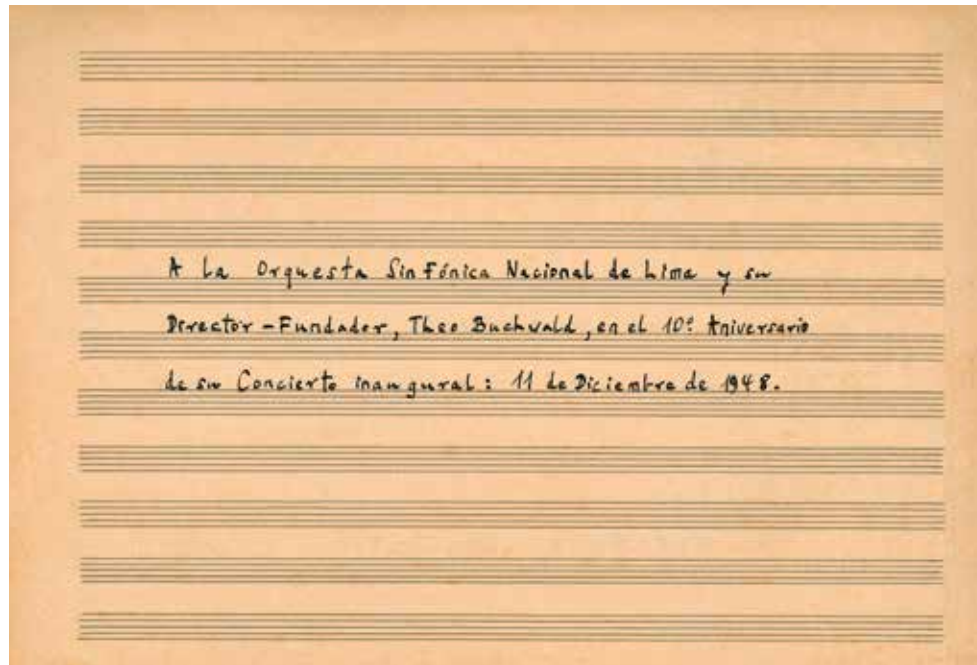 A La Orquesta Sinfónica Nacional de Lima y su
Director-Fundador, Theo Buchwald, en el 10º Aniversario
de su Concierto inaugural: 11 de Diciembre de 1948.